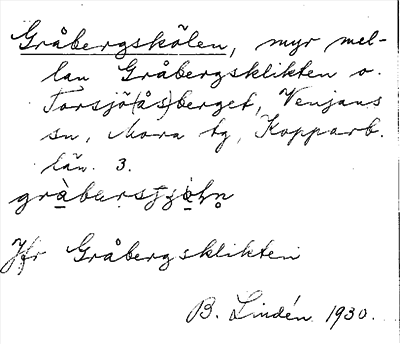 Gråbergskölen, myr mel-
lan Gråbergsklikten o.
Torsjö(ås)berget, Venjans
sn, Mora tg, Kopparb.
län. 3.
Jfr Gråbergsklikten
B. Lindén 1930.